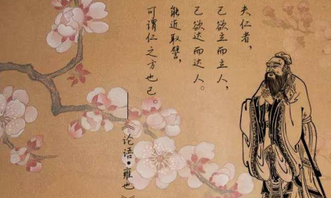 夫仁者，
己欲立而立人，
己欲达而达人。
能近取譬，
可谓仁之方也已
论语·雍也